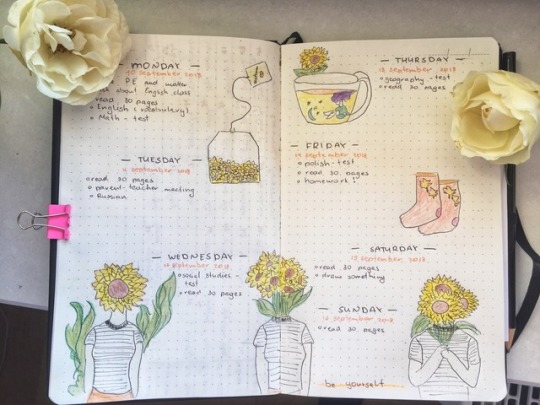 — MONDAY —
10 september 2018
PE and
about English class
read 30 pages
English (vocabulary)
Math - test
— TUESDAY —
11 september 2018
read 30 pages
parent-teacher meeting
Russian
— WEDNESDAY —
12 september 2018
social studies -
test
read 30 pages
— THURSDAY —
13 september 2018
geography - test
read 30 pages
— FRIDAY —
14 september 2018
polish - test
read 30 pages
homework :
— SATURDAY —
15 september 2018
read 30 pages
draw something
— SUNDAY —
16 september 2018
read 30 pages
be yourself